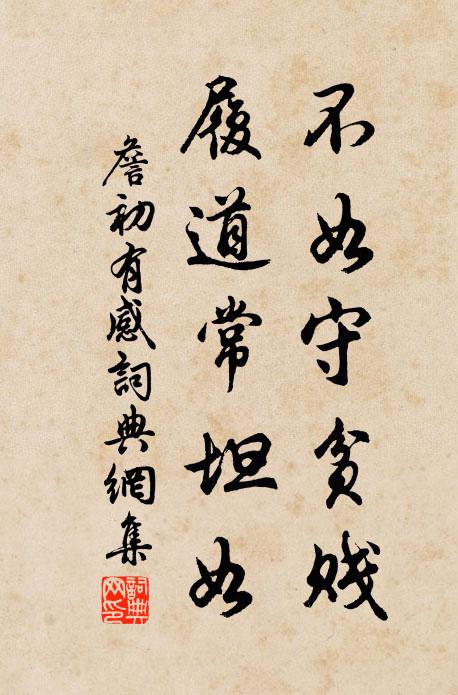 不如守貧賤
履道常坦如
詹初有感詞典網集
詞典網印